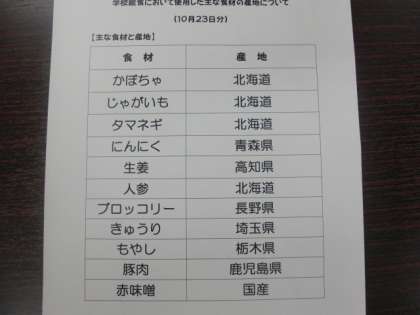 学校給食において使用した主な食材の産地について
（１０月２３日分）
【主な食材と産地】
食　材　産　地
かぼちゃ　北海道
じゃがいも　北海道
タマネギ　北海道
にんにく　青森県
生姜　高知県
人参　北海道
ブロッコリー　長野県
きゅうり　埼玉県
もやし　栃木県
豚肉　鹿児島県
赤味噌　国産